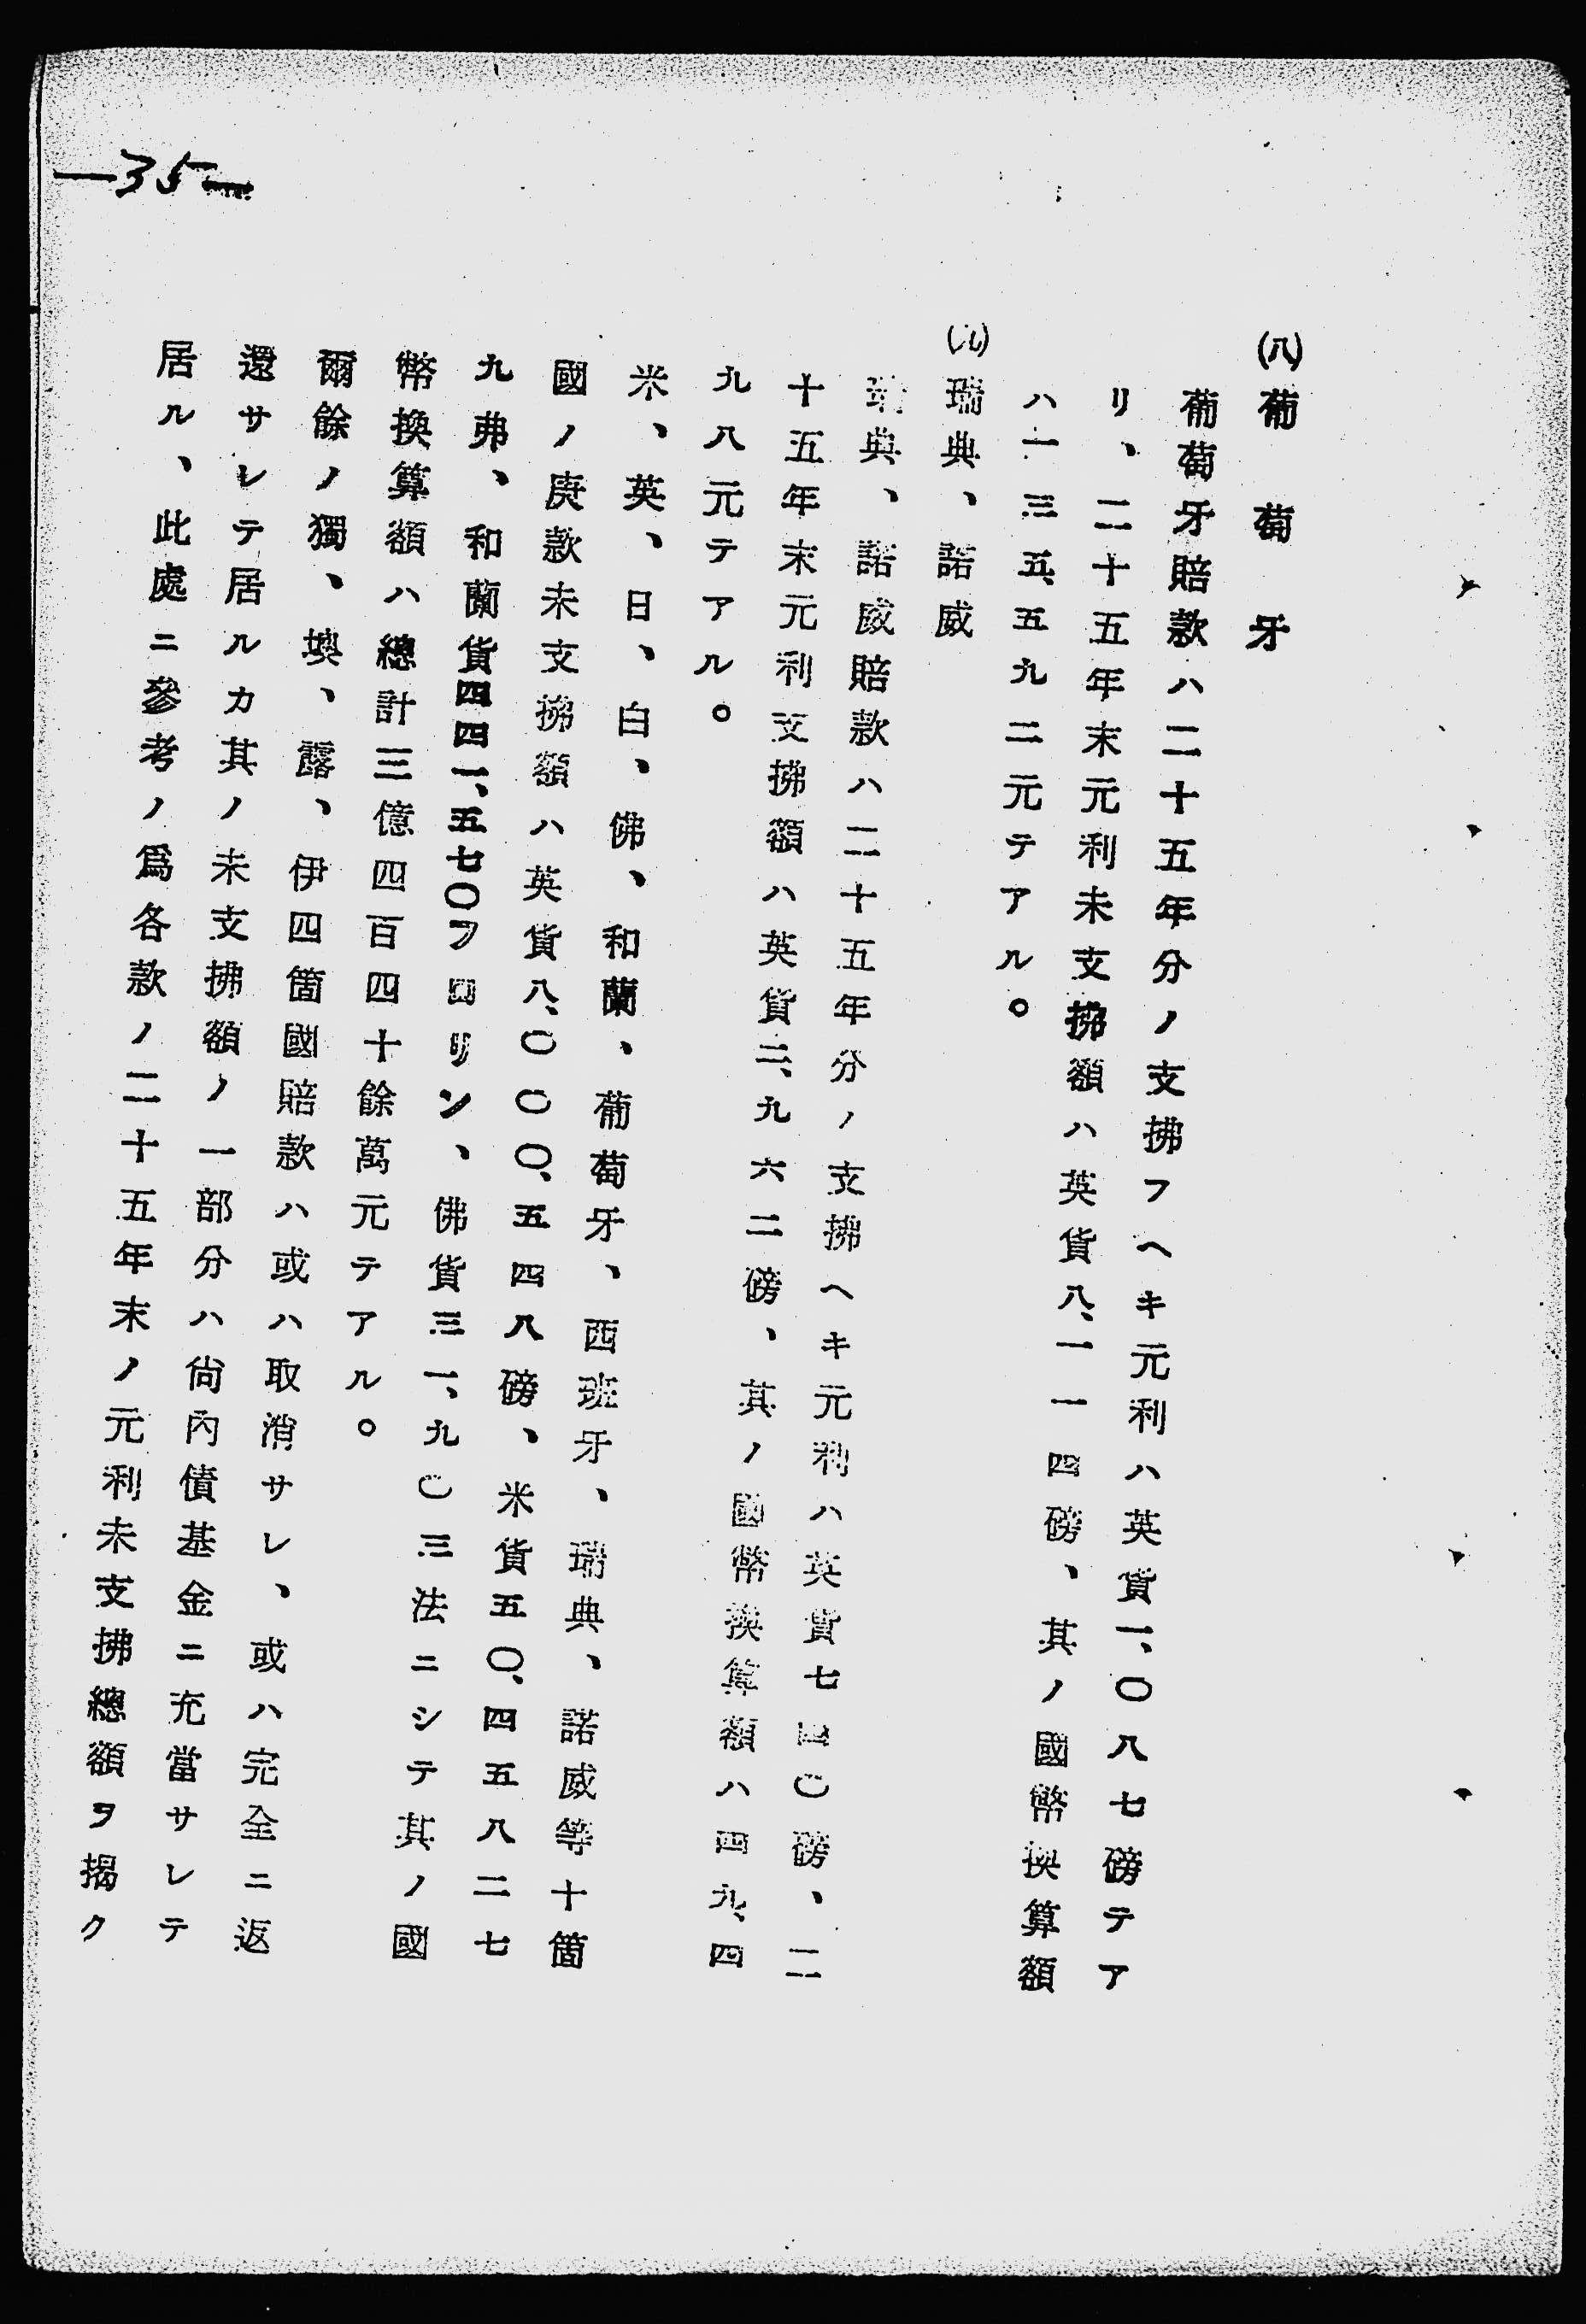 —35—
(八)葡萄牙
葡萄牙賠款ハ二十五年分ノ支拂フヘキ元利ハ英貨一、〇八七磅テア
リ、二十五年末元利未支拂額ハ英貨八、一一四磅、其ノ國幣換算額
ハ一三五、五九二元テアル。
(九)瑞典、諾威
瑞典、諾威賠款ハ二十五年分ノ支拂ヘキ元利ハ英貨七四〇磅、二
十五年末元利支拂額ハ英貨二、九六二磅、其ノ國幣換算額ハ四九、四
九八元テアル。
米、英、日、白、佛、和蘭、葡萄牙、西班牙、瑞典、諾威等十箇
國ノ庚款未支拂額ハ英貨八、〇〇〇、五四八磅、米貨五〇、四五八二七
九弗、和蘭貨四四一、五七〇フロリン、佛貨三一、九〇三法ニシテ其ノ國
幣換算額ハ總計三億四百四十餘萬元テアル。
爾餘ノ獨、墺、露、伊四箇國賠款ハ或ハ取消サレ、或ハ完全ニ返
還サレテ居ルカ其ノ未支拂額ノ一部分ハ尚內債基金ニ充當サレテ
居ル、此處ニ參考ノ爲各款ノ二十五年末ノ元利未支拂總額ヲ揭ク